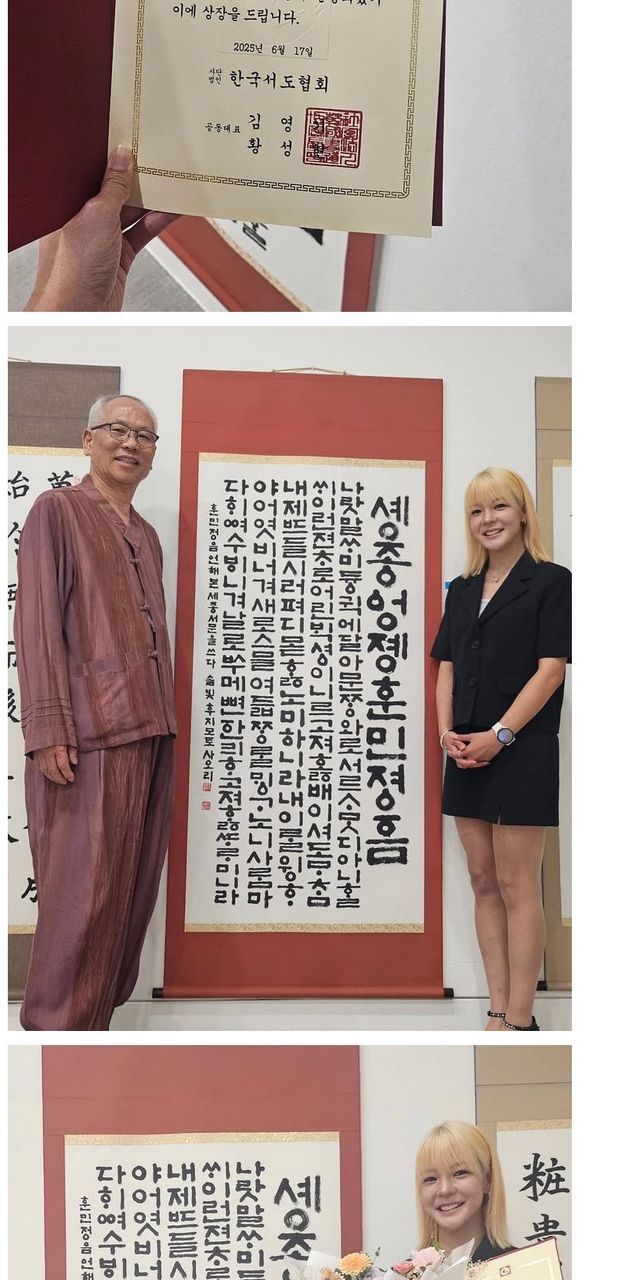 이에 상장을 드립니다.
2025년 6월 17일
사단법인 한국서도협회
공동대표 김 영
황 성
솅종엉졩훈민졍흠
나랏말ᄊᆞ미듕귁에달아문ᄍᆞᆼ와로서르ᄉᆞᄆᆞᆺ디아니ᄒᆞᆯ
ᄊᆡ이런젼ᄎᆞ로어린ᄇᆡᆨ셩이니르고져호ᇙ배이셔도ᄆᆞᄎᆞᆷ
내제ᄠᅳ들시러펴디몯호ᇙ노미하니라내이ᄅᆞᆯ윙ᄒᆞ
야어엿비너겨새로스믈여듧ᄍᆞᆼᄅᆞᆯᄆᆡᇰᄀᆞ노니사ᄅᆞᆷ마
다ᄒᆡᅇᅧ수ᄫᅵ니겨날로ᄡᅮ메뼌한킈ᄒᆞ고져ᄒᆞᇙᄯᆞᄅᆞ미니라
훈민정음언해본세종서문을쓰다 솔빛후지모토사오리
솅조
나랏말ᄊᆞ미
ᄊᆡ이런젼ᄎᆞ로
내제ᄠᅳ들시
야어엿비너
다ᄒᆡᅇᅧ수ᄫᅵ
훈민정음언해
粧
貴